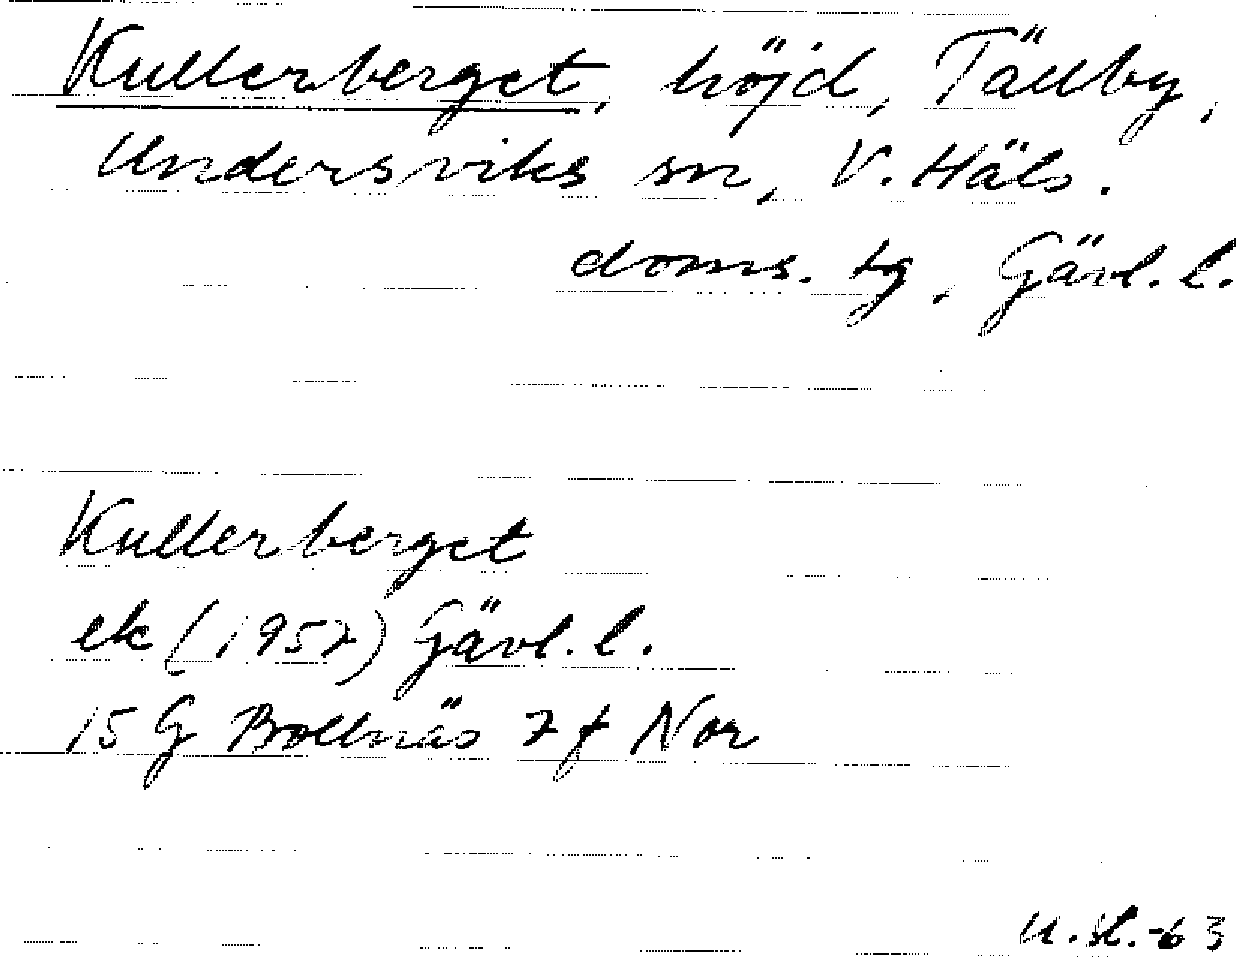 Kullerberget, höjd, Tällby,
Undersviks sn, V. Häls.
doms. tg, Gävl. l.
Kullerberget
ek (1957) Gävl. l.
15 G Bollnäs 7 f Nor
-63